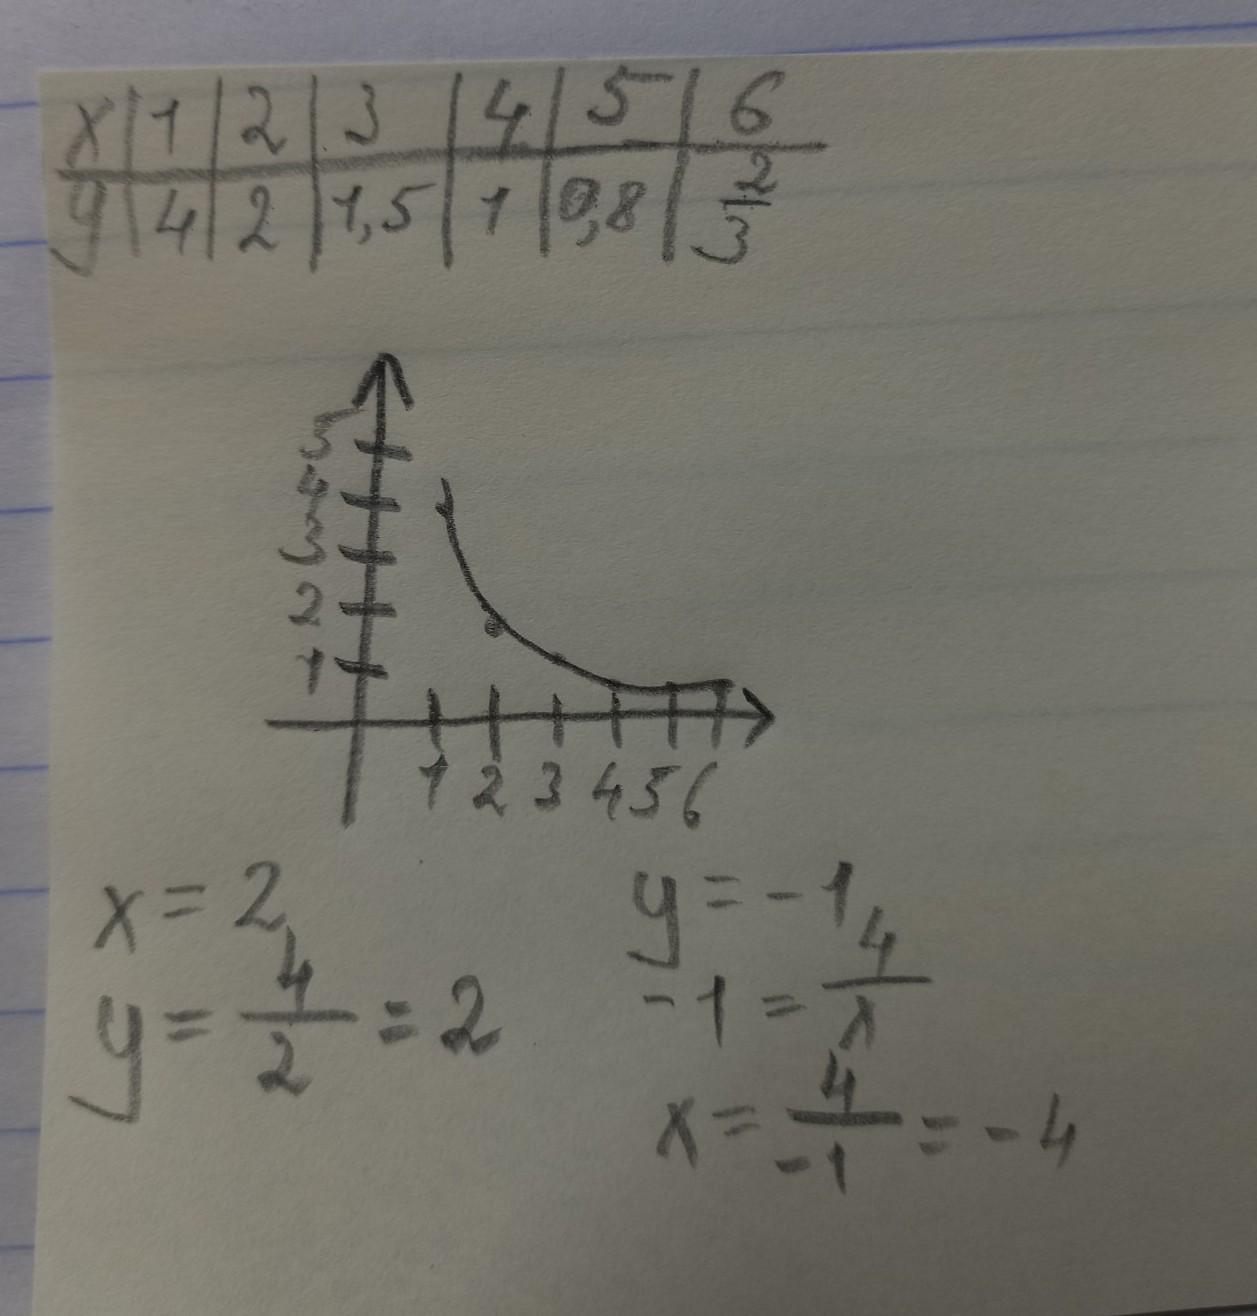 x | 1 | 2 | 3 | 4 | 5 | 6
y | 4 | 2 | 1,5 | 1 | 0,8 | 2/3
5
4
3
2
1
1 2 3 4 5 6
x = 2
y = 4/2 = 2
y = -1
-1 = 4/x
x = 4/-1 = -4